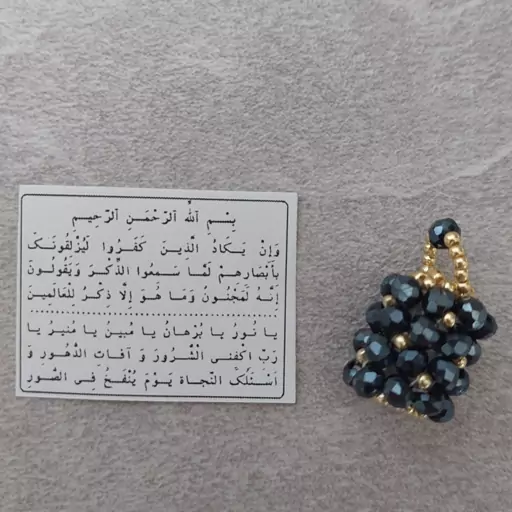 بِسْمِ ٱللّٰهِ ٱلرَّحْمَنِ ٱلرَّحِيمِ
وَإِنْ يَكَادُ الَّذِينَ كَفَرُوا لَيُزْلِقُونَكَ
بِأَبْصَارِهِمْ لَمَّا سَمِعُوا الذِّكْرَ وَيَقُولُونَ
إِنَّهُ لَمَجْنُونٌ وَمَا هُوَ إِلَّا ذِكْرٌ لِلْعَالَمِينَ
يَا نُورُ يَا بُرْهَانُ يَا مُبِينُ يَا مُنِيرُ يَا
رَبِّ اكْفِنِي الشُّرُورَ وَ آفَاتِ الدُّهُورِ وَ
أَسْئَلُكَ النَّجَاةَ يَوْمَ يُنْفَخُ فِي الصُّورِ